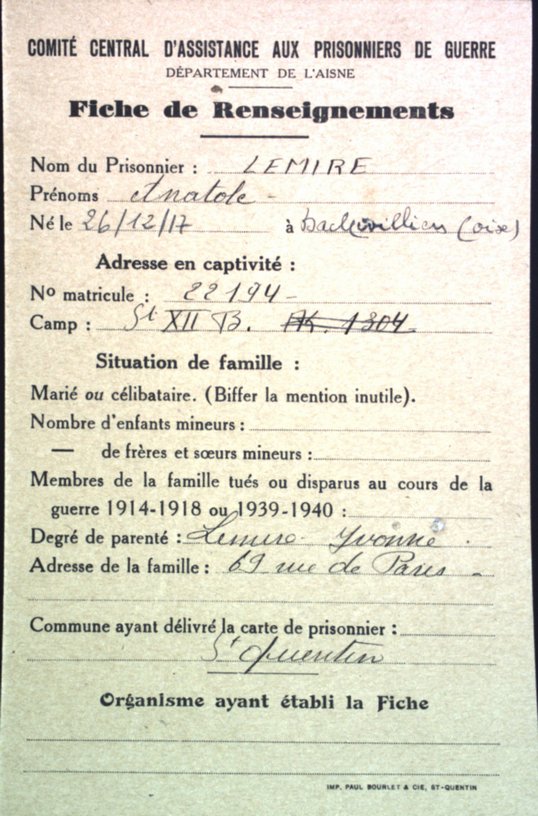 COMITÉ CENTRAL D'ASSISTANCE AUX PRISONNIERS DE GUERRE
DÉPARTEMENT DE L'AISNE
Fiche de Renseignements
Nom du Prisonnier : LEMIRE
Prénoms Anatole -
Né le 26/12/17 à Bachivilliers (oise)
Adresse en captivité :
No matricule : 22194 -
Camp : St XII B. AK. 1304
Situation de famille :
Marié ou célibataire. (Biffer la mention inutile).
Nombre d'enfants mineurs :
— de frères et sœurs mineurs :
Membres de la famille tués ou disparus au cours de la
guerre 1914-1918 ou 1939-1940 :
Degré de parenté : Lemire Yvonne.
Adresse de la famille : 69 rue de Paris -
Commune ayant délivré la carte de prisonnier :
St Quentin
Organisme ayant établi la Fiche
IMP. PAUL BOURLET & CIE, ST-QUENTIN